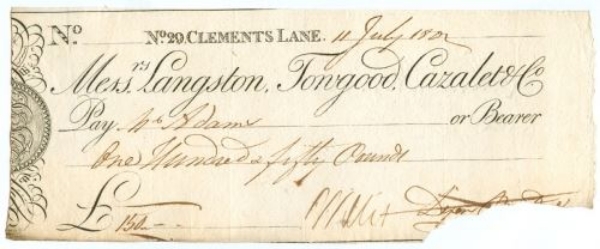 No. No. 29, CLEMENTS LANE. 11 July 1802
Messrs. Langston, Towgood, Cazalet & Co
Pay Wm Adams or Bearer
One Hundred & fifty Pounds
£ 150